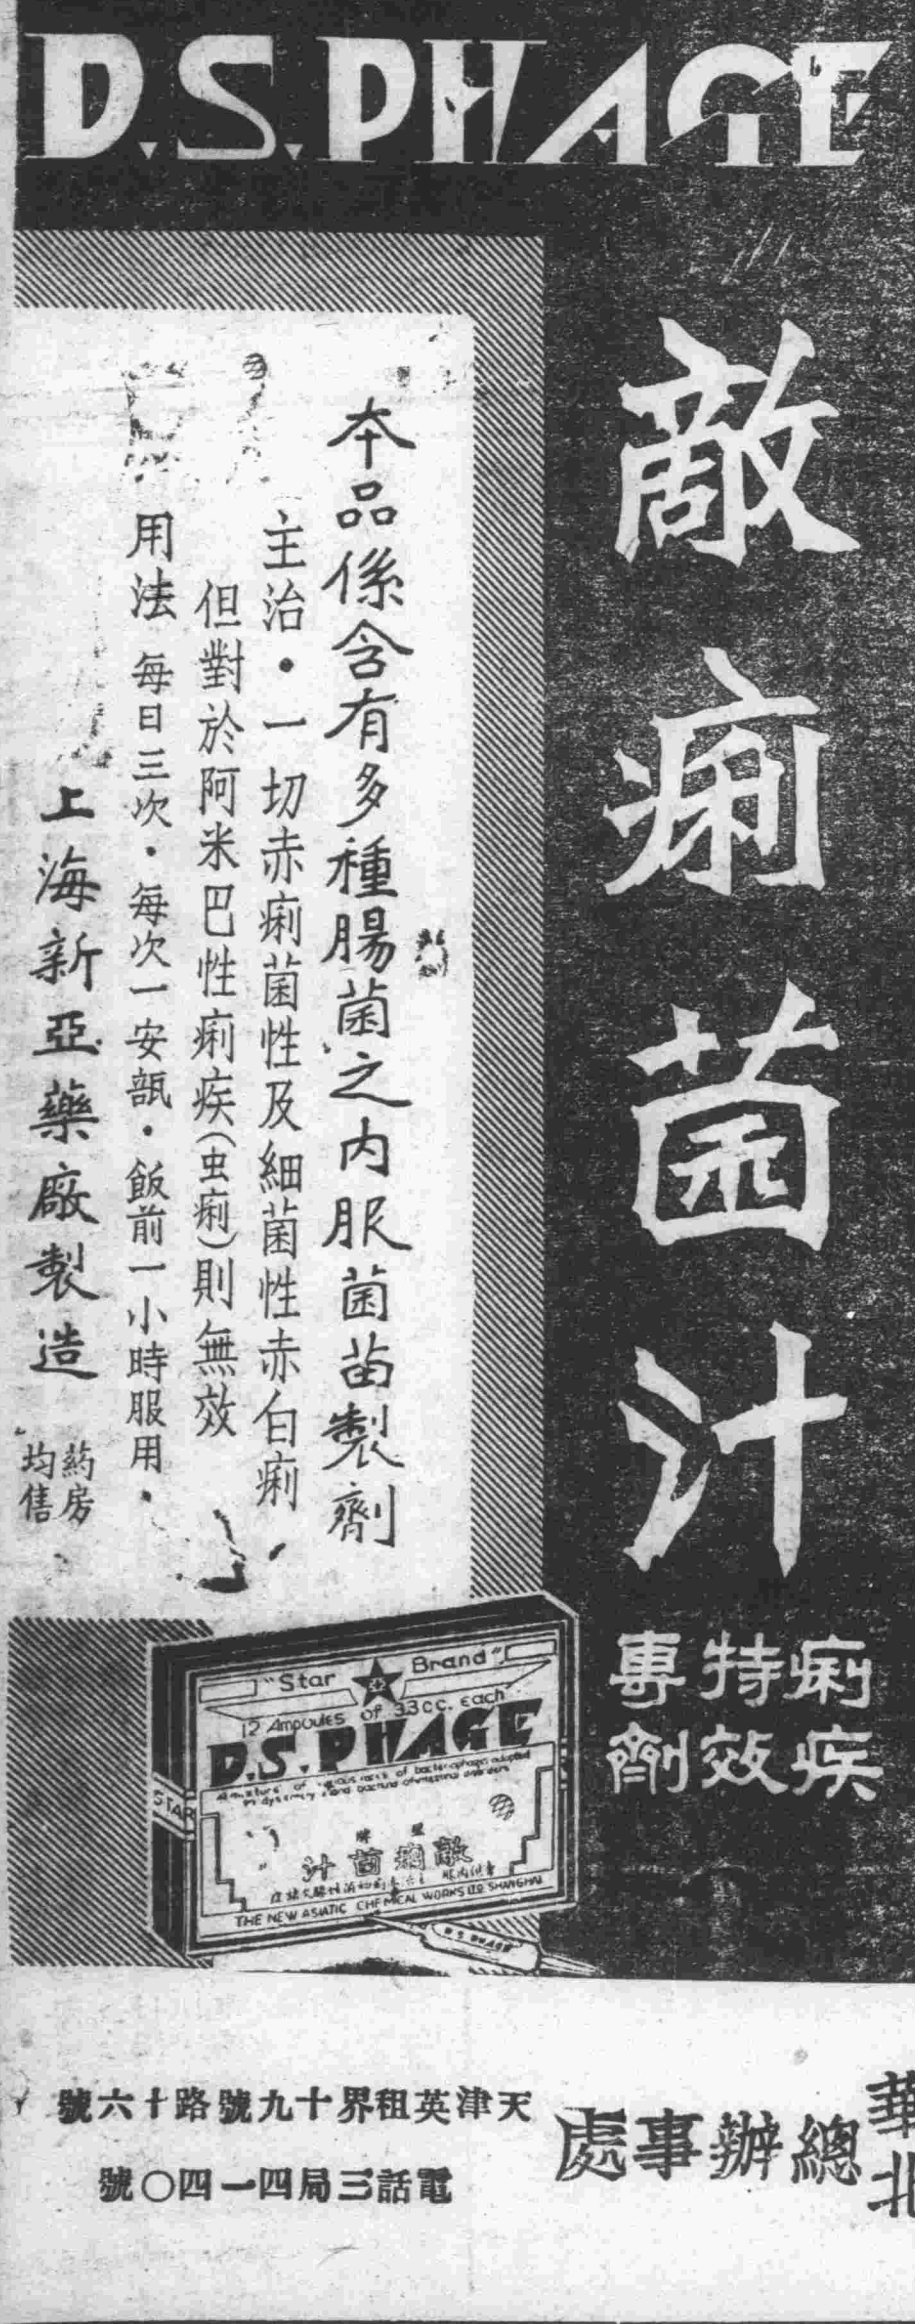 D.S.PHAGE
敵痢菌汁
痢疾
特效
專劑
本品係含有多種腸菌之内服菌苗製劑
主治・一切赤痢菌性及細菌性赤白痢・
但對於阿米巴性痢疾(虫痢)則無效
用法 每日三次・每次一安瓿・飯前一小時服用・
上海新亞藥廠製造
葯房
均售
"Star Brand"
12 Ampoules of 3.3cc. each
D.S.PHAGE
of bacteriophages adapted
STAR
星牌
敵痢菌汁
THE NEW ASIATIC CHEMICAL WORKS LTD. SHANGHAI
D S PHAGE
華北
總辦事處
天津英租界十九號路十六號
電話三局四一四〇號